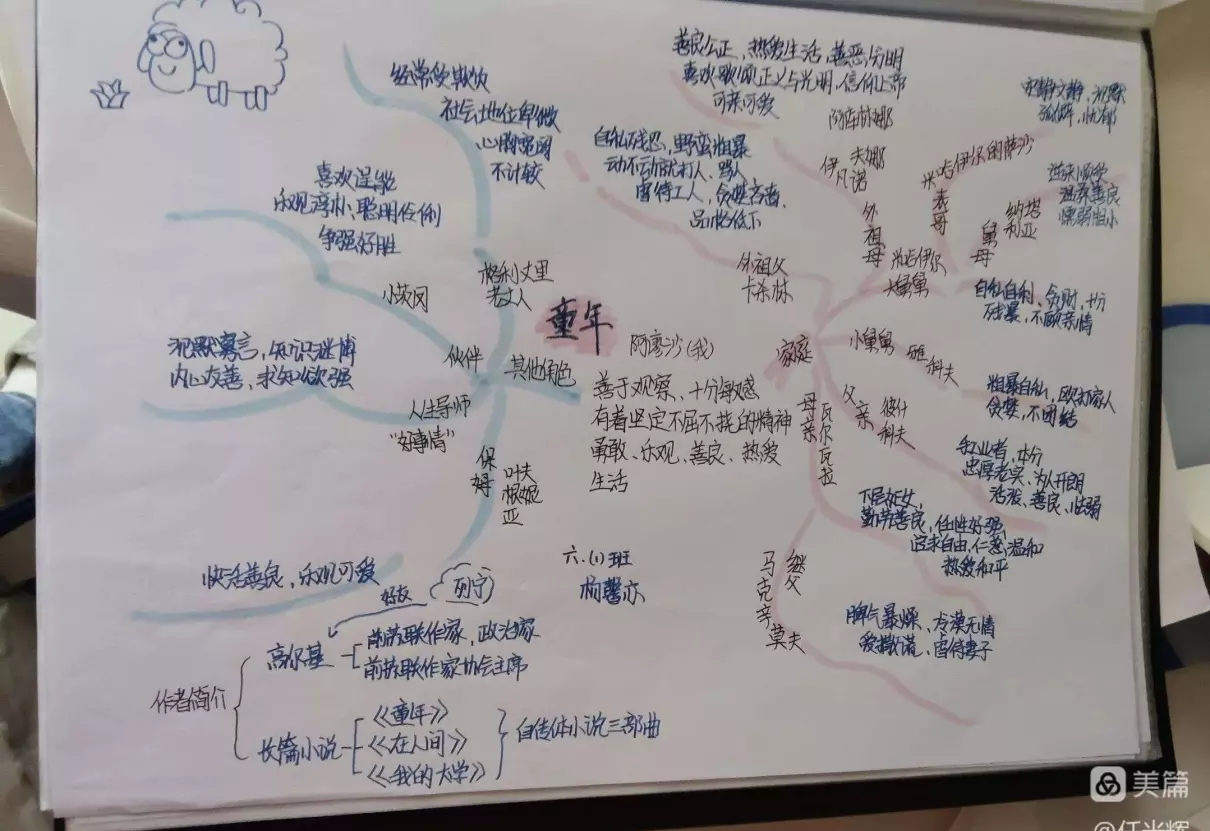 童年
阿廖沙(我)
善于观察、十分敏感
有着坚定不屈不挠的精神
勇敢、乐观、善良、热爱
生活
其他角色
格利戈里
老丈人
经常受欺
社会地位卑微
心胸宽阔
不计较
伙伴
小茨冈
喜欢逞能
乐观淳朴、聪明伶俐
争强好胜
人生导师
“好事情”
沉默寡言,知识渊博
内心友善、求知欲强
保姆
叶夫
根妮
亚
快活善良,乐观可爱
家庭
外祖父
卡杀林
自私残忍,野蛮粗暴
动不动就打人、骂人
虐待工人,贪婪吝啬、
品格低下
外祖母
阿库林娜
伊凡诺
夫娜
善良公正,热爱生活,善恶分明
喜欢歌颂正义与光明,信仰上帝
可亲可爱
米哈伊尔
大舅舅
自私自利、贪财、十分
残暴,不顾亲情
表哥
米哈伊尔的萨沙
安静文静,沉默
孤僻,忧郁
舅母
纳塔
利亚
温柔善良
懦弱胆小
小舅舅
雅
科夫
粗暴自私,殴打家人
贪婪,不团结
父亲
彼什
科夫
忠厚老实、为人开朗
活泼、善良、怯弱
母亲
瓦尔瓦拉
下层妇女,
勤劳善良,任性好强,
追求自由,仁慈,温和
热爱和平
继父
马克辛莫夫
脾气暴燥、冷漠无情
爱撒谎、虐待妻子
六.(1)班
杨馨亦
作者简介
高尔基
好友
列宁
前苏联作家,政治家
前苏联作家协会主席
长篇小说
《童年》
《在人间》
《我的大学》
自传体小说三部曲
美篇
@任光辉